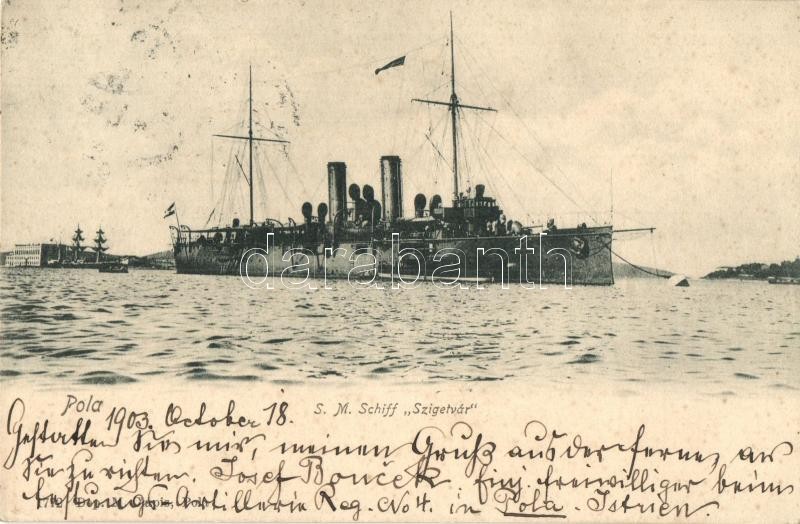 darabanth
Pola
S. M. Schiff „Szigetvár“
1903. October 18.
Gestatten Sie mir, meinen Gruß aus der ferne, an
Sie zu richten. Josef Bouček Einj. freiwilliger beim
festungs-Artillerie Reg. No 4. in Pola. Istrien